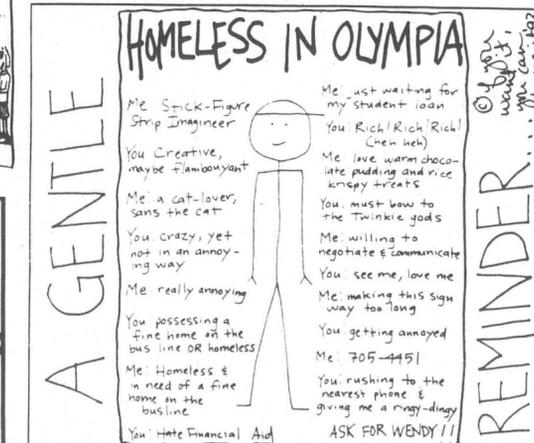 HOMELESS IN OLYMPIA
A GENTLE
Me Stick-Figure
Strip Imagineer
You Creative,
maybe flambouyant
Me: a cat-lover,
sans the cat
You. crazy, yet
not in an annoy-
ing way
Me really annoying
You possessing a
fine home on the
bus line OR homeless
Me: Homeless &
in need of a fine
home on the
busline
You: Hate Financial Aid
Me: just waiting for
my student loan
You: Rich! Rich! Rich!
(heh heh)
Me love warm choco-
late pudding and rice
krispy treats
You. must bow to
the Twinkie gods
Me: willing to
negotiate & communicate
You: see me, love me
Me: making this sign
way too long
You: getting annoyed
Me: 705-4451
You: rushing to the
nearest phone &
giving me a ringy-dingy
ASK FOR WENDY!!
REMINDER...
© if you
want
you can